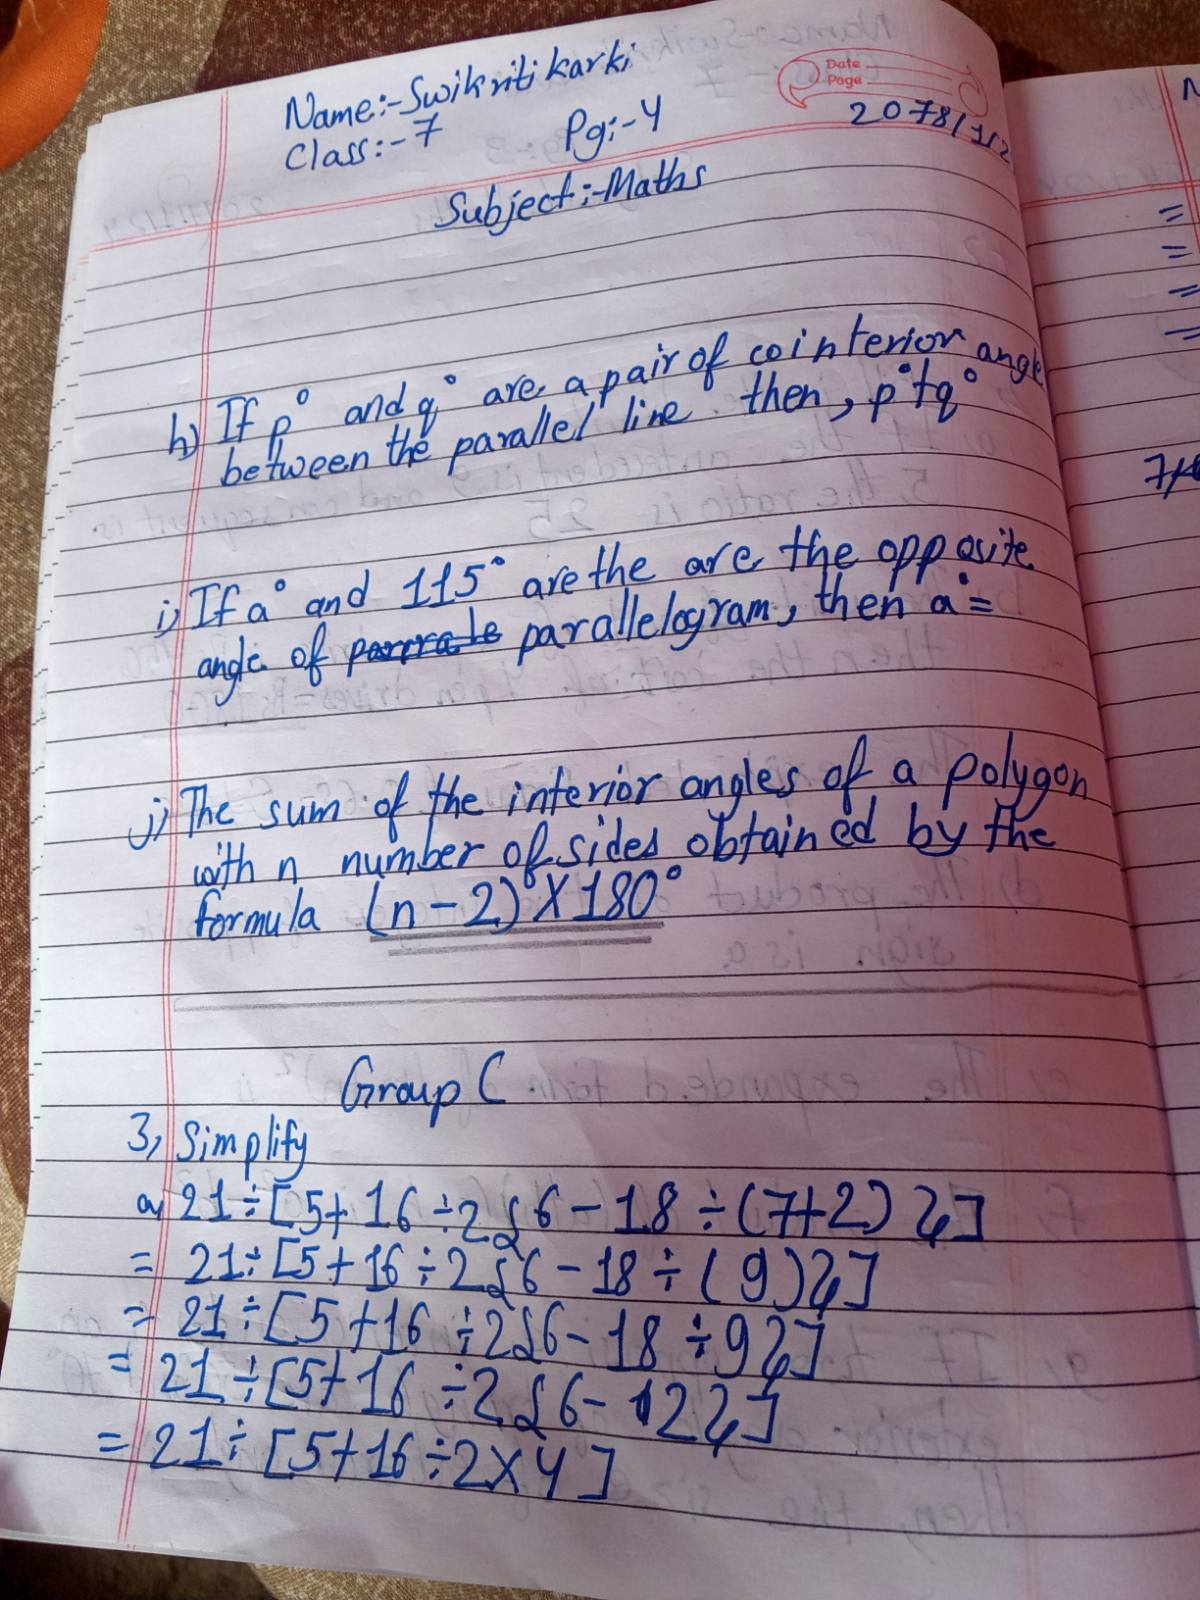 Name:-Swikriti karki
Class:-7
Pg:-4
Date
Page
2078/1/2
Subject:-Maths
h) If p° and q° are a pair of cointerior angle
between the parallel line then, p°+q°
i) If a° and 115° are the are the opposite
angle of parallelogram, then a°=
j) The sum of the interior angles of a polygon
with n number of sides obtained by the
formula (n-2)°X180°
Group C
3, Simplify
a, 21÷[5+16÷2{6-18÷(7+2)}]
= 21÷[5+16÷2{6-18÷(9)}]
= 21÷[5+16÷2{6-18÷9}]
= 21÷[5+16÷2{6-2}]
= 21÷[5+16÷2X4]
=
=
=
=